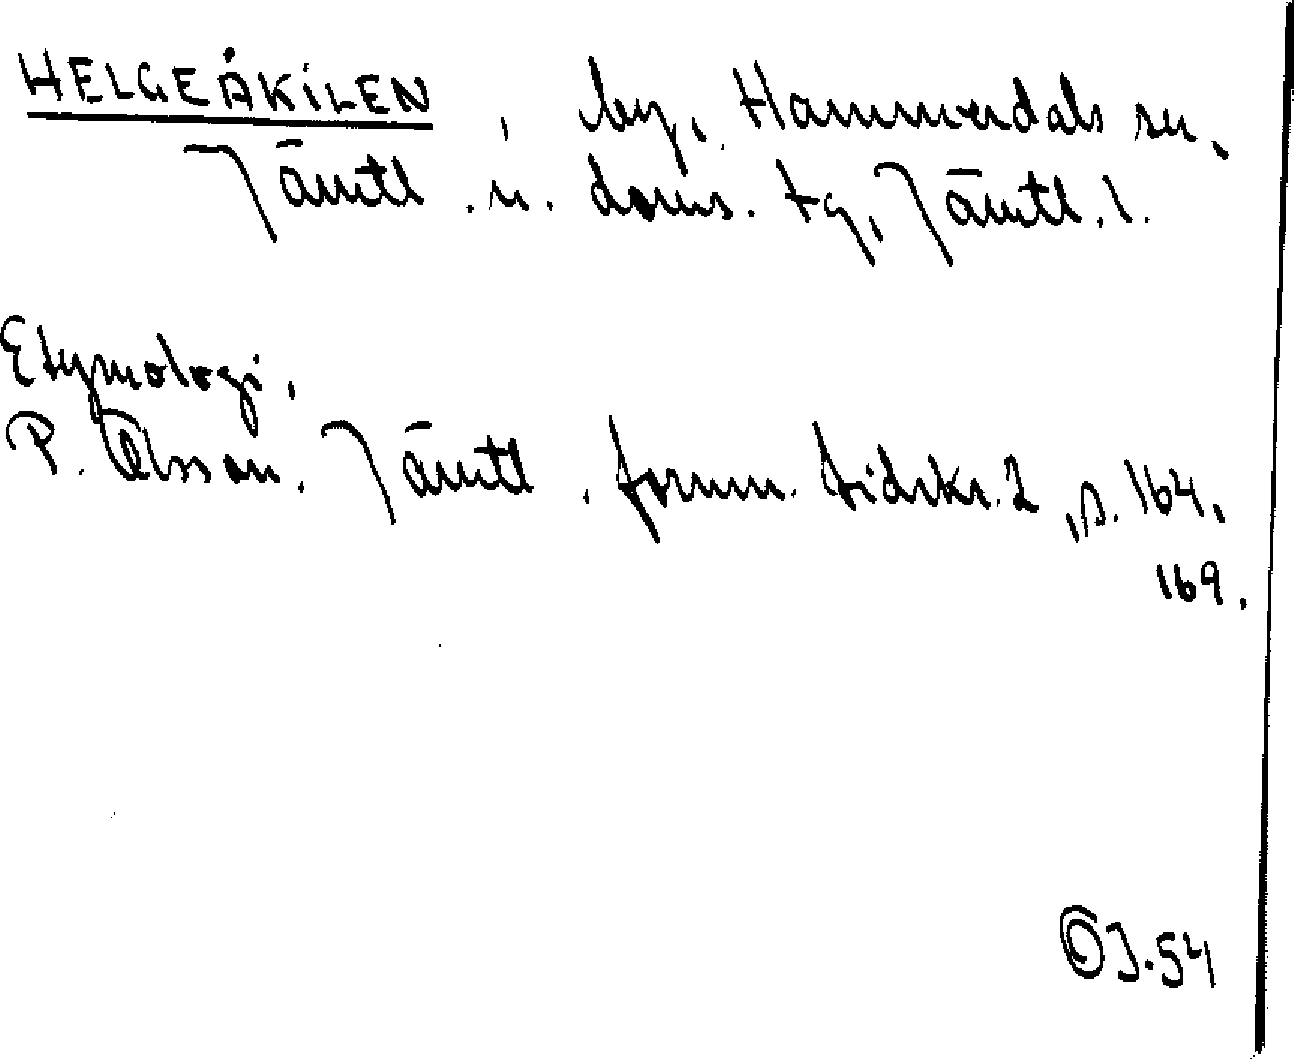 HELGEÅKILEN, by, Hammerdals sn.
Jämtl. n. doms. tg, Jämtl. l.
Etymologi.
P. Olsson. Jämtl. fornm. tidskr. 2, s. 164,
169.
J. 54